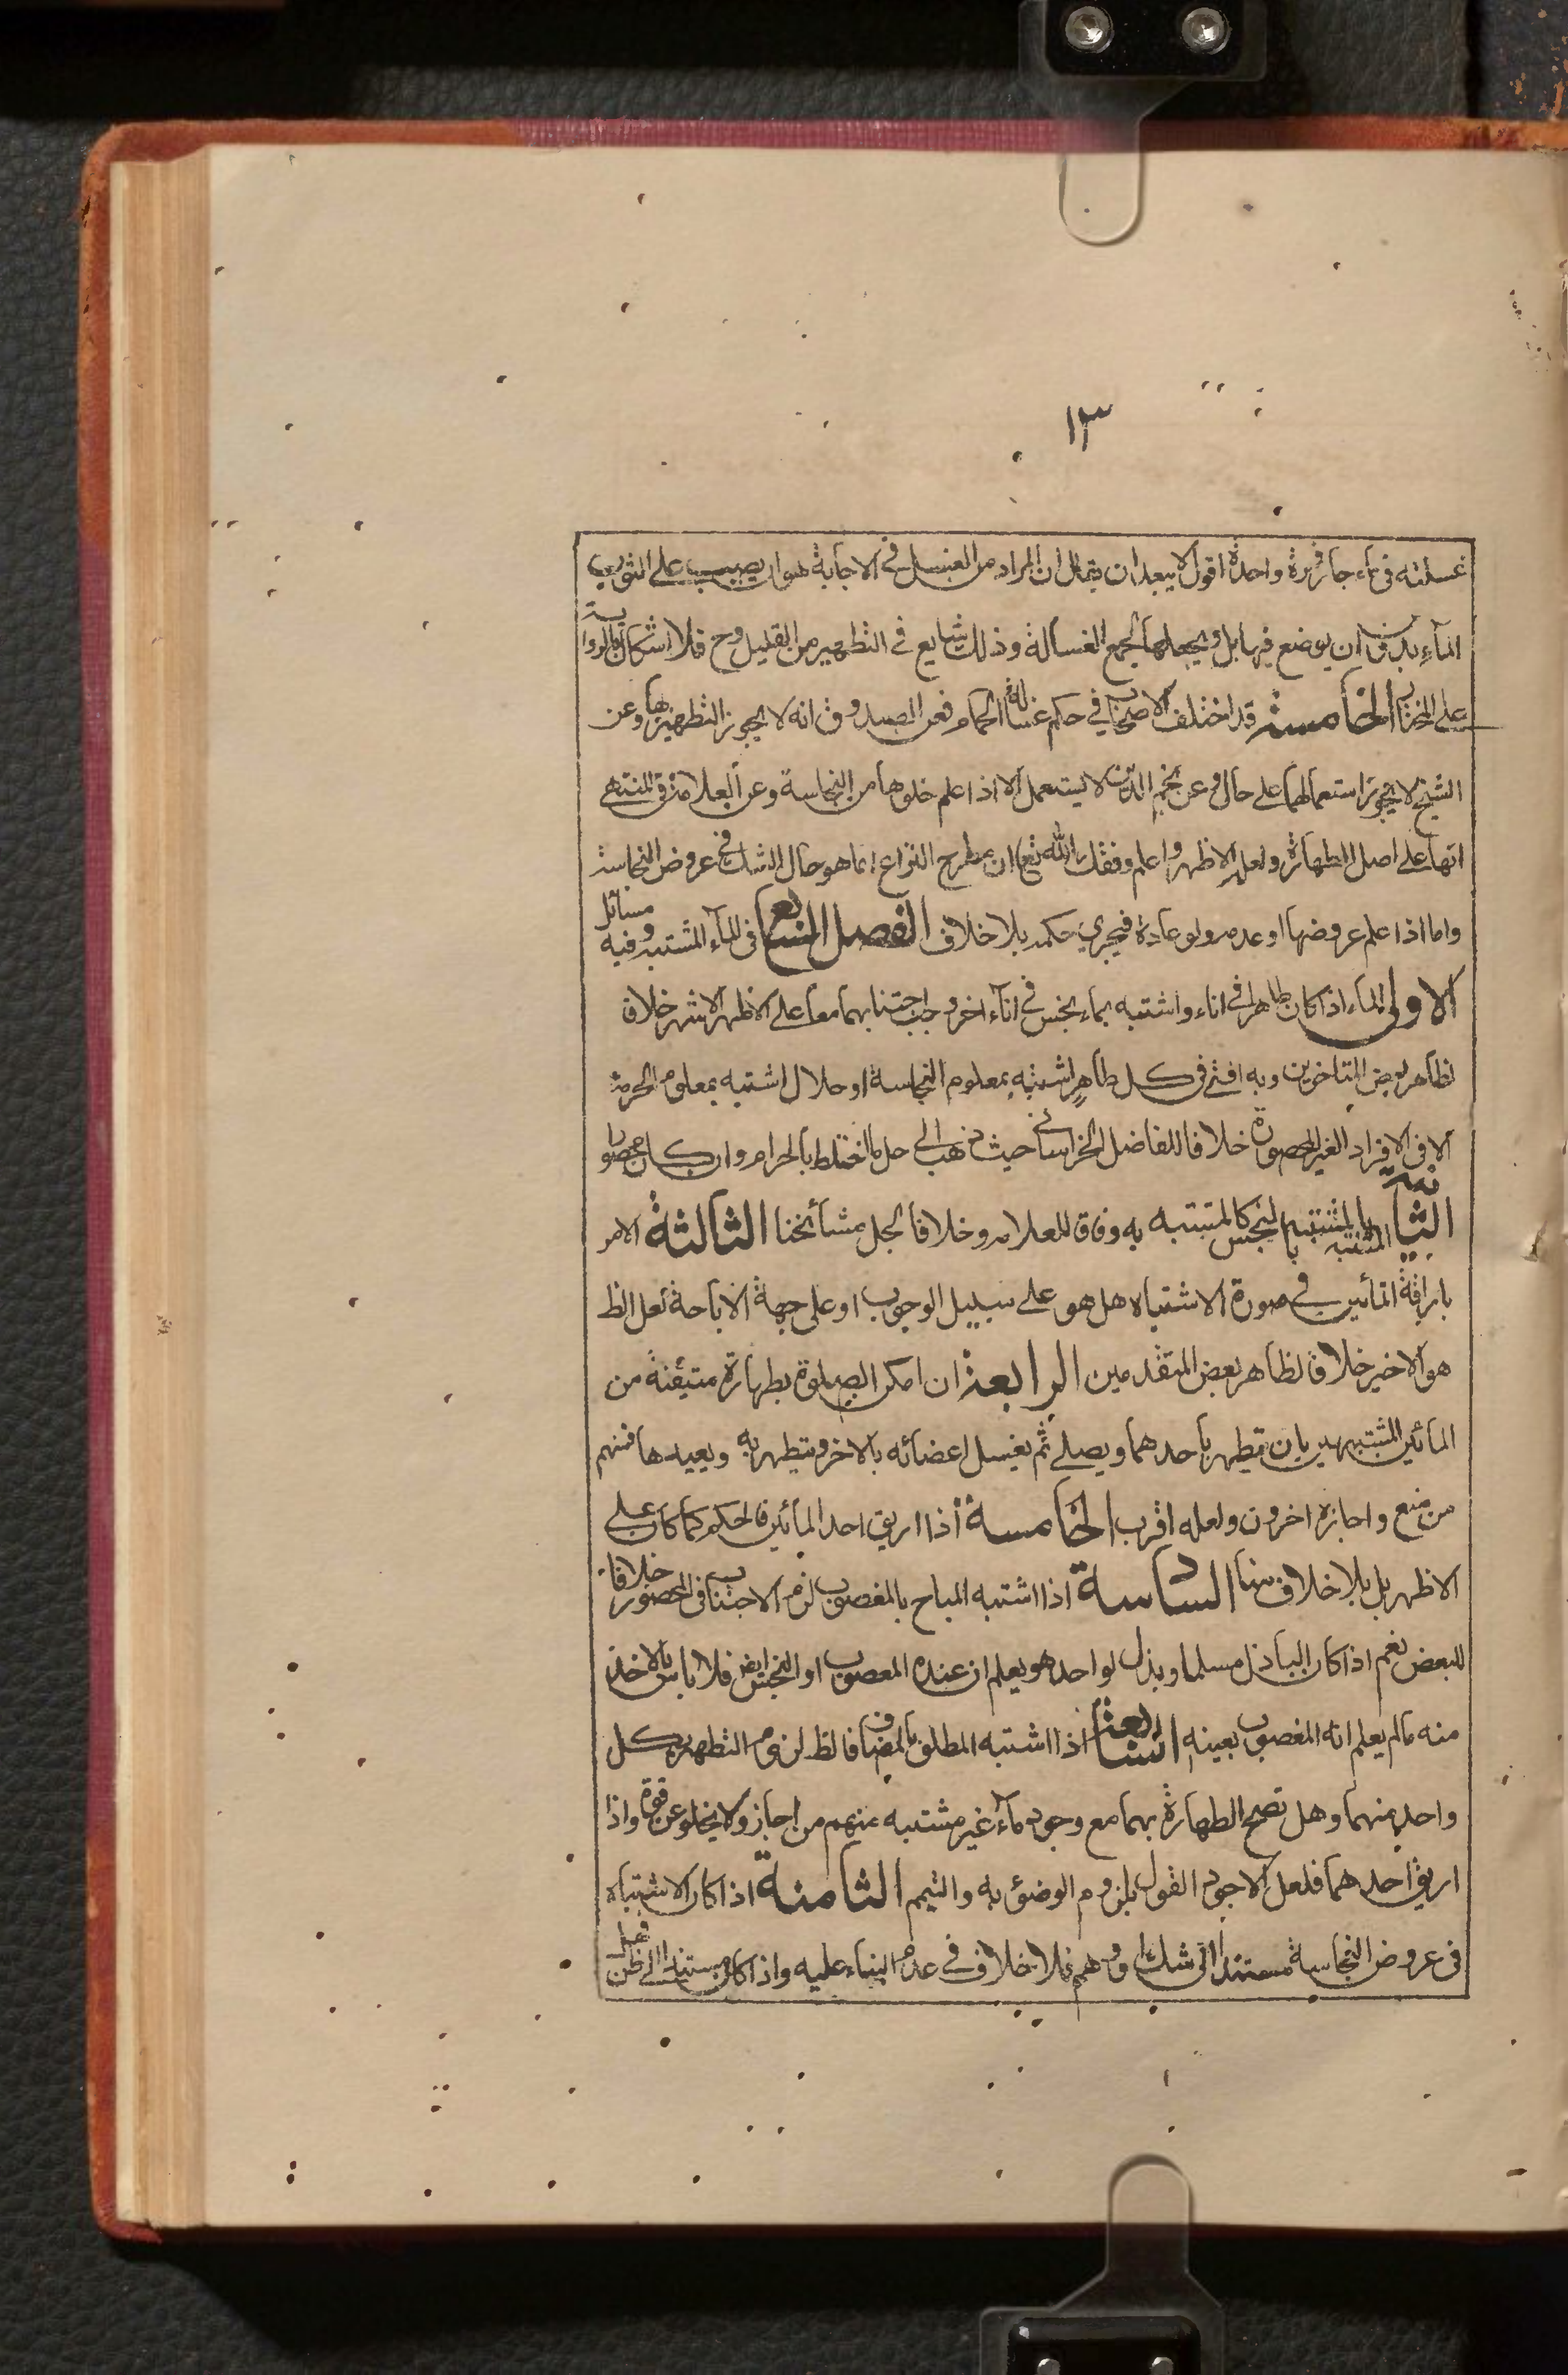 ١٣
غسلته فى ماء جار فمرة واحدة اقول لا يبعد ان يقال ان المراد من الغسل فى الاجابة هو ان يصب على الثوب
الماء بدون ان يوضع فيها بل ويجعلها لجمع الغسالة وذلك شايع فى التطهير من القليل وح فلا اشكال بالرواية
على المختار الخامسة قد اختلف الاصحاب في حكم غسالة الحمام فعن الصدوق انه لا يجوز التطهير بها وعن
الشيخ لا يجوز استعمالها على حال وعن نجم الدين لا يستعمل الا اذا علم خلوها من النجاسة وعن العلامة فى المنتهى
انها على اصل الطهارة ولعله الاظهر واعلم وفقك الله تع ان مطرح النزاع انما هو حال الشك في عروض النجاسة
واما اذا علم عروضها او عدمه ولو عادة فيجري حكمه بلا خلاف الفصل السابع فى الماء المشتبه وفيه مسائل
الاولى الماء اذا كان طاهرا فى اناء واشتبه بماء نجس فى اناء اخر وجب اجتنابهما معا على الاظهر الاشهر خلاف
لظاهر بعض المتاخرين وبه افتى فى كل طاهر اشتبه بمعلوم النجاسة او حلال اشتبه بمعلوم الحرمة
الا فى الافراد الغير المحصورة خلافا للفاضل الخراسانى حيث ذهب الى حل ما اختلط بالحرام وان كان محصورا
الثانية المشتبه بالمشتبه بالنجس كالمشتبه به وفاق للعلامه وخلافا لجل مشائخنا الثالثة الامر
باراقة المائين فى صورة الاشتباه هل هو على سبيل الوجوب او على جهة الاباحة لعل الظ
هو الاخير خلاف لظاهر بعض المتقدمين الرابعة ان امكن الصلوة بطهارة متيقنة من
المائين المشتبهين بان يتطهر باحدهما ويصلى ثم يغسل اعضائه بالاخر ويتطهر به ويعيدها فمنهم
من منع واجازه اخرون ولعله اقرب الخامسة اذا اريق احد المائين فالحكم كما كان على
الاظهر بل بلا خلاف منا السادسة اذا اشتبه المباح بالمغصوب لزم الاجتناب فى المحصور خلافا
للبعض نعم اذا كان الباذل مسلما وبذل لواحد هو يعلم ان عنده المغصوب او النجس ايض فلا باس بالاخذ
منه ما لم يعلم انه المغصوب بعينه السابعة اذا اشتبه المطلق بالمضاف فالظ لزوم التطهر بكل
واحد منهما وهل تصح الطهارة بهما مع وجود ماء غير مشتبه منهم من اجاز ولا يخلو عن قوة واذا
اريق احدهما فلعل الاجود القول بلزوم الوضوء به والتيمم الثامنة اذا كان الاشتباه
فى عروض النجاسة مستندا الى شك او وهم فلا خلاف فى عدم البناء عليه واذا كان مستندا الى ظن فهل